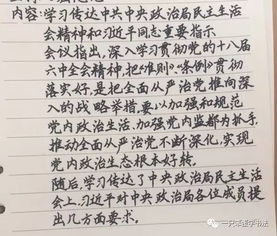 内容:学习传达中共中央政治局民主生活
会精神和习近平同志重要指示
会议指出,深入学习贯彻党的十八届
六中全会精神,把《准则》、《条例》贯彻
落实好,是把全面从严治党推向深
入的战略举措,要以加强和规范
党内政治生活、加强党内监督为抓手
推动全面从严治党不断深化,实现
党内政治生态根本好转。
随后,学习传达了中央政治局民主生活
会上,习近平对中央政治局各位成员提
出几方面要求。